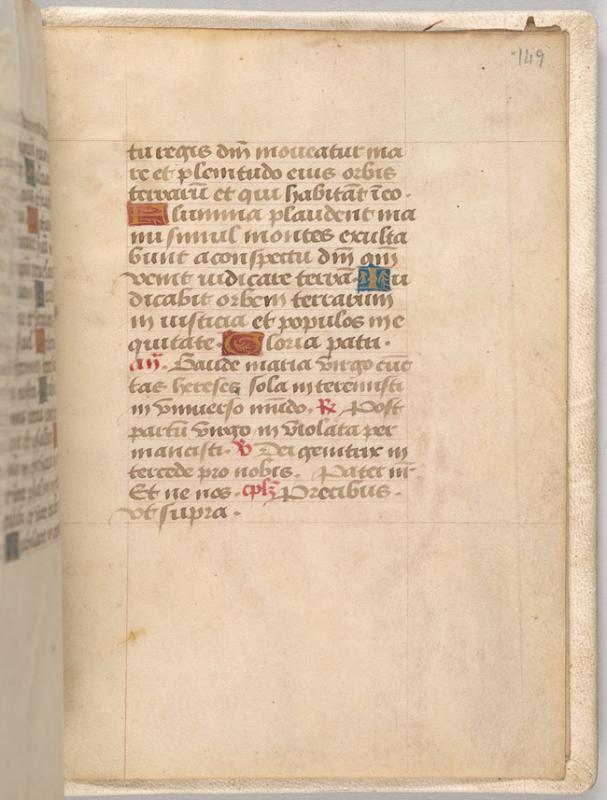 149
tu regis dm̄ moueatur ma
re et plenitudo eius orbis
terrarū et qui habitāt ī eo.
Flumina plaudent ma
nu simul montes exulta
bunt a conspectu dm̄ qm̄
venit iudicare terrā. Iu
dicabit orbem terrarum
in iusticia et populos in e
quitate. Gloria patri.
añ. Gaude maria v̄irgo cūc
tas hereses sola interemisti
in v̄niuerso mūdo. ℟ Post
partū v̄irgo inv̄iolata per
mancisti. ℣ Dei genitrix in
tercede pro nobis. Pater nr̄.
Et ne nos. cplʒ Precibus.
vt supra.